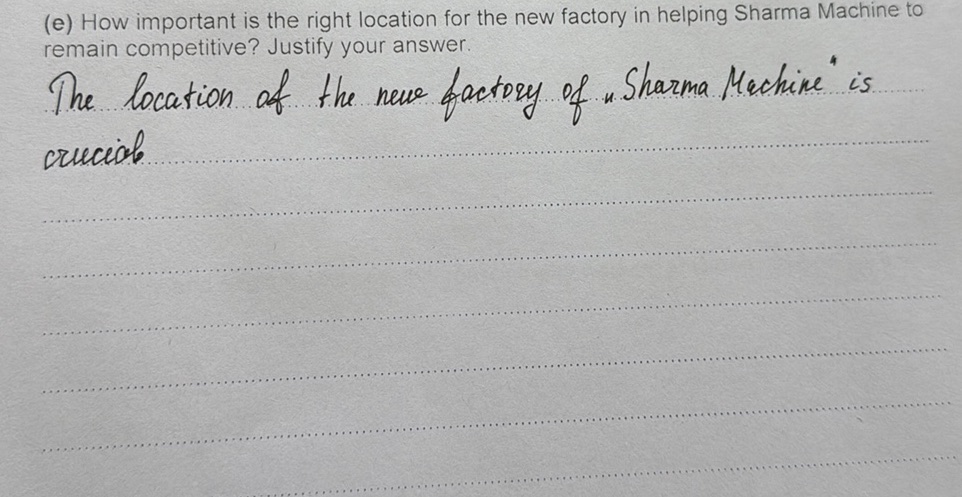 (e) How important is the right location for the new factory in helping Sharma Machine to
remain competitive? Justify your answer.
The location of the new factory of „Sharma Machine“ is
crucial